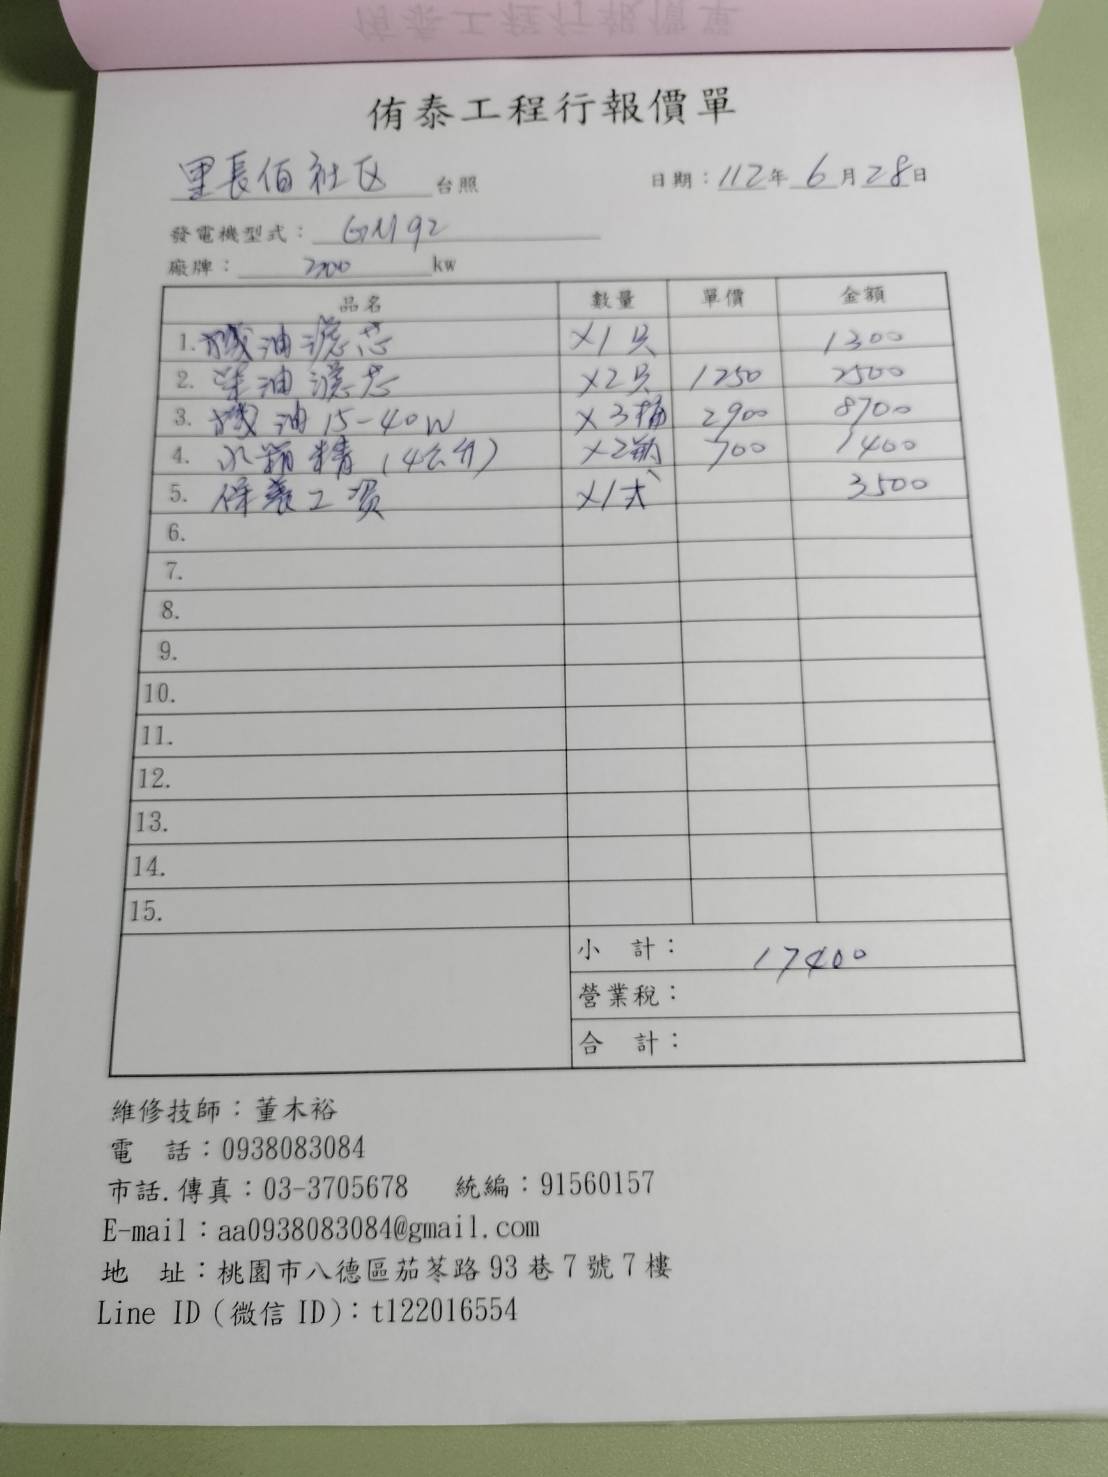 侑泰工程行報價單
里長佰社区 台照 日期：112年6月28日
發電機型式：GM92
廠牌：200 kw
品名 數量 單價 金額
1. 機油濾芯 ×1只 1300
2. 柴油濾芯 ×2只 1250 2500
3. 機油 15-40W ×3桶 2900 8700
4. 水箱精 (4公升) ×2瓶 700 1400
5. 保養工資 ×1式 3500
6.
7.
8.
9.
10.
11.
12.
13.
14.
15.
小 計： 17400
營業稅：
合 計：
維修技師：董木裕
電 話：0938083084
市話.傳真：03-3705678 統編：91560157
E-mail：aa0938083084@gmail.com
地 址：桃園市八德區茄苳路 93 巷 7 號 7 樓
Line ID (微信 ID)：t122016554